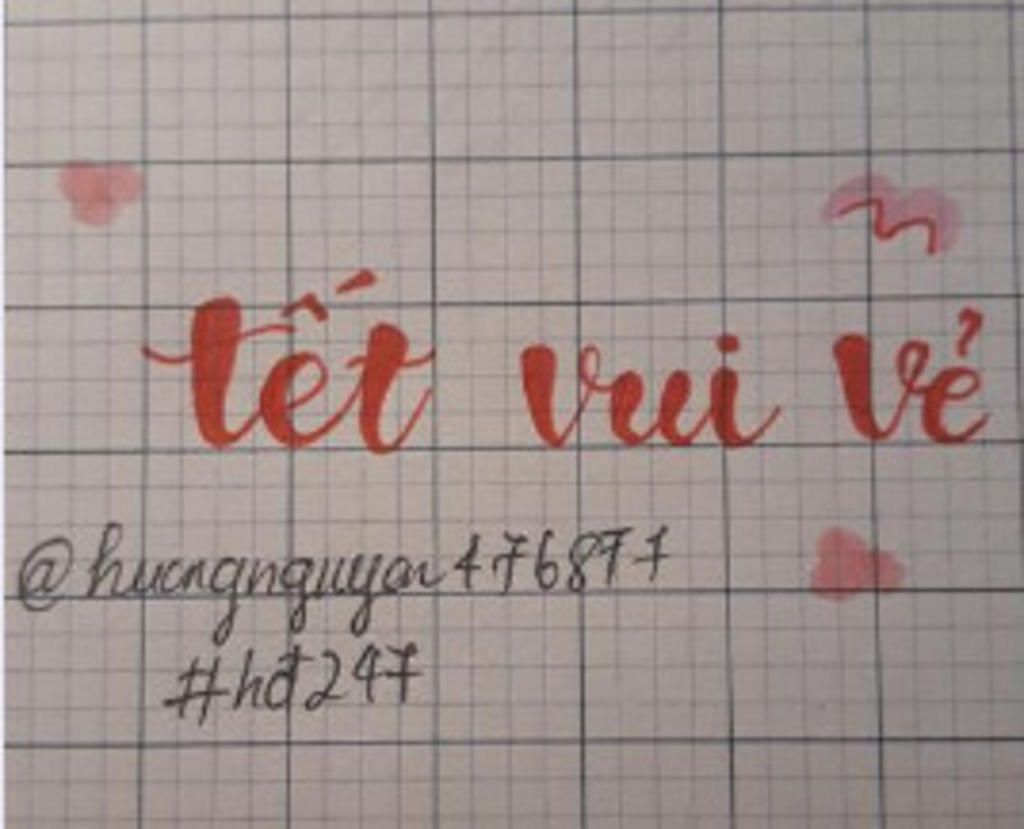 tết vui vẻ
@huongnguyen476877
#hđ247